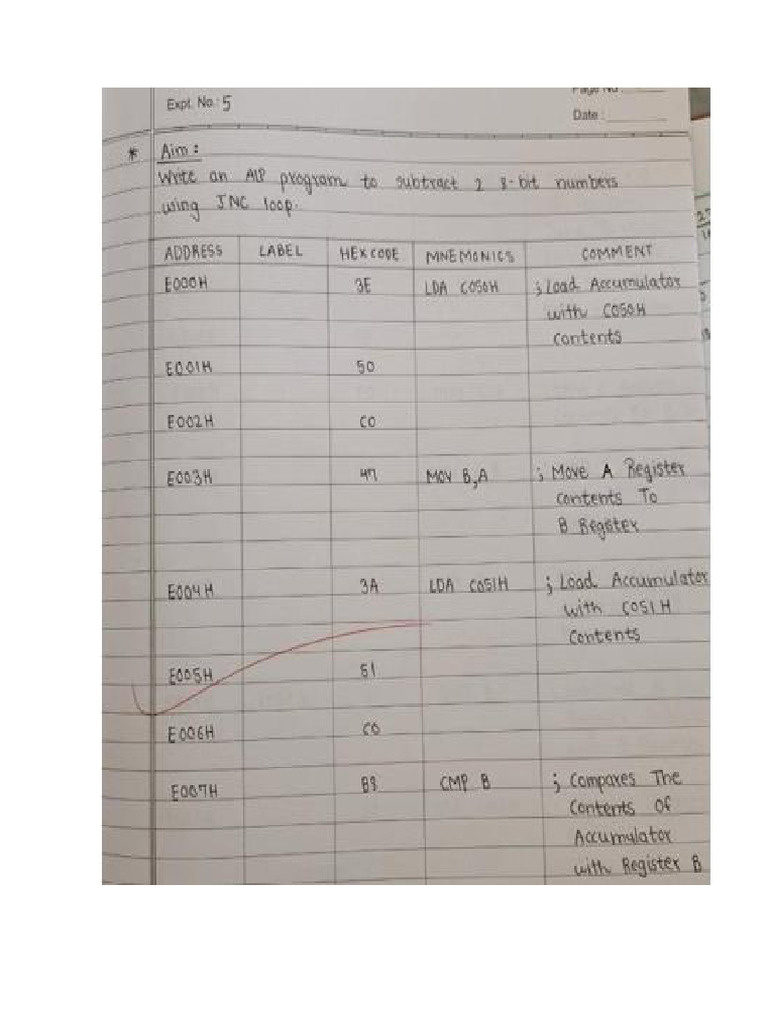 Page No
Expt. No.: 5
Date :
* Aim :
Write an ALP program to subtract 2 8-bit numbers
using JNC loop.
ADDRESS LABEL HEXCODE MNEMONICS COMMENT
E000H 3E LDA C050H ; Load Accumulator
with C050H
Contents
E001H 50
E002H C0
E003H 47 MOV B,A ; Move A Register
Contents To
B Register
E004H 3A LDA C051H ; Load Accumulator
with C051H
Contents
E005H 51
E006H C0
E007H B8 CMP B ; Compares The
Contents Of
Accumulator
with Register B